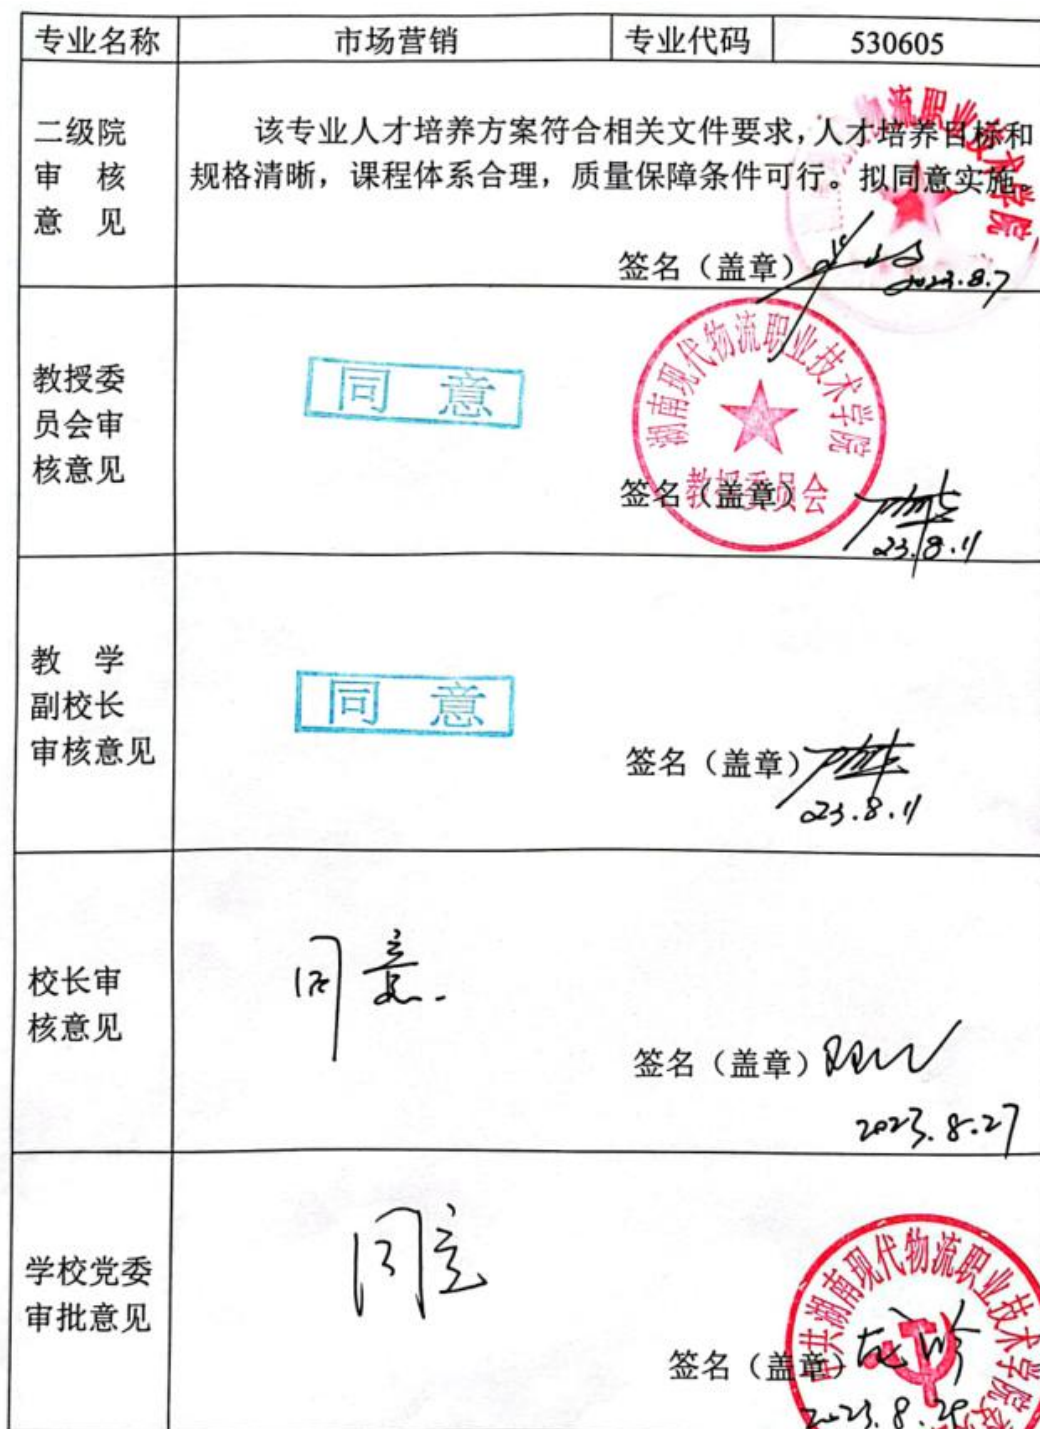 专业名称 市场营销 专业代码 530605
二级院
审 核
意 见
该专业人才培养方案符合相关文件要求，人才培养目标和
规格清晰，课程体系合理，质量保障条件可行。拟同意实施。
签名（盖章）
2023.8.7
物流职业技术学院
教授委
员会审
核意见
同 意
湖南现代物流职业技术学院
教授委员会
签名（盖章）
23.8.11
教 学
副校长
审核意见
同 意
签名（盖章）
23.8.11
校长审
核意见
同意.
签名（盖章）
2023.8.27
学校党委
审批意见
同意
中共湖南现代物流职业技术学院委
签名（盖章）